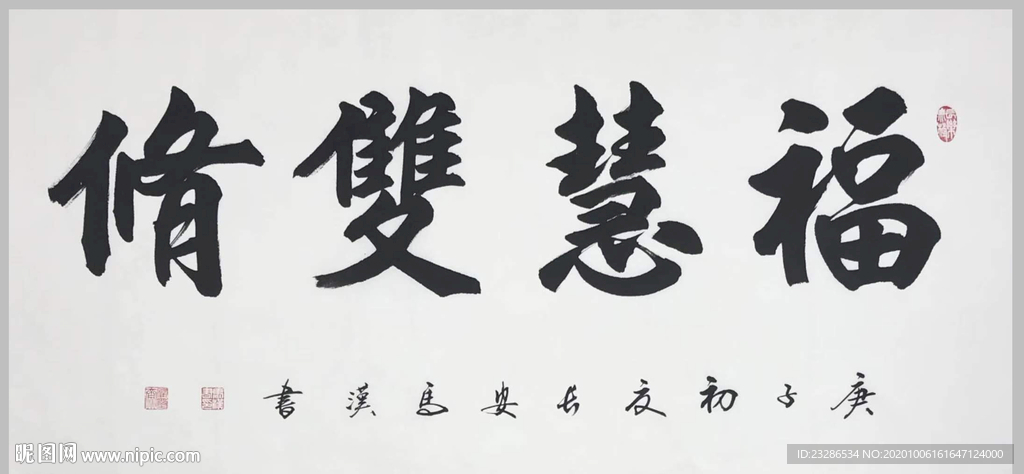 福慧雙脩
庚子初夏長安馬漢書
昵图网 www.nipic.com
ID:23286534 NO:20201006161647124000